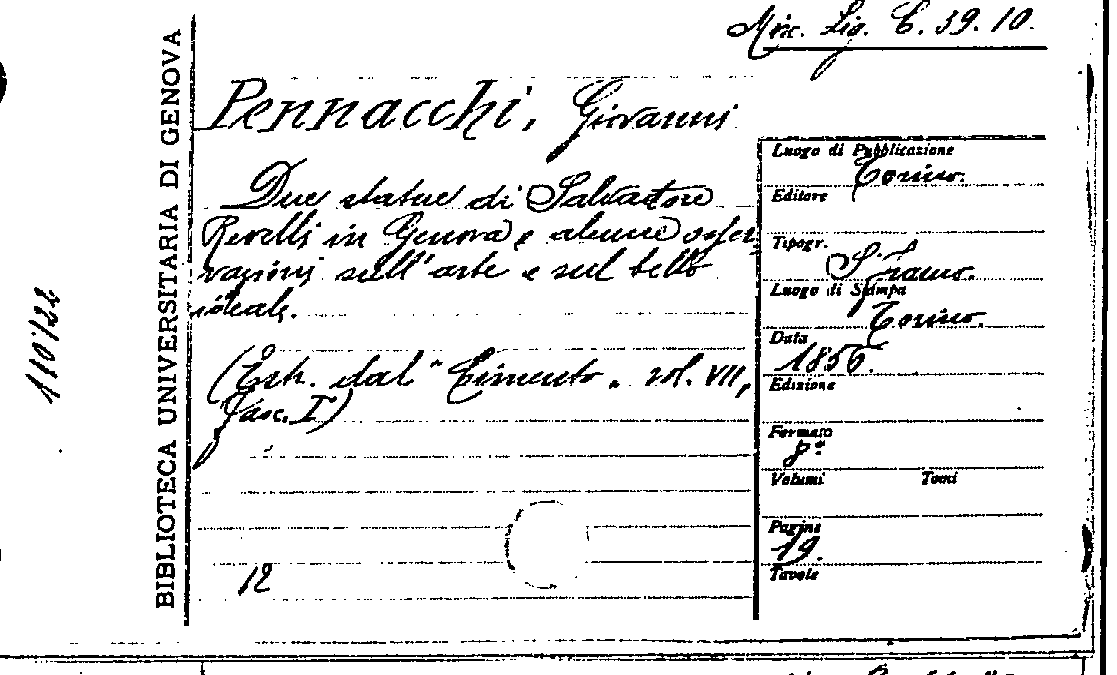 Misc. Lig. C. 39. 10.
BIBLIOTECA UNIVERSITARIA DI GENOVA
Pennacchi, Giovanni
Due statue di Salvatore
Revelli in Genova e alcune osser
vazioni sull'arte e sul bello
ideale.
(Estr. dal "Cimento" vol. VII,
fasc. I)
12
Luogo di Pubblicazione
Torino.
Editore
Tipogr.
S. Franco.
Luogo di Stampa
Torino.
Data
1856.
Edizione
Formato
8º
Volumi Tomi
Pagine
19.
Tavole